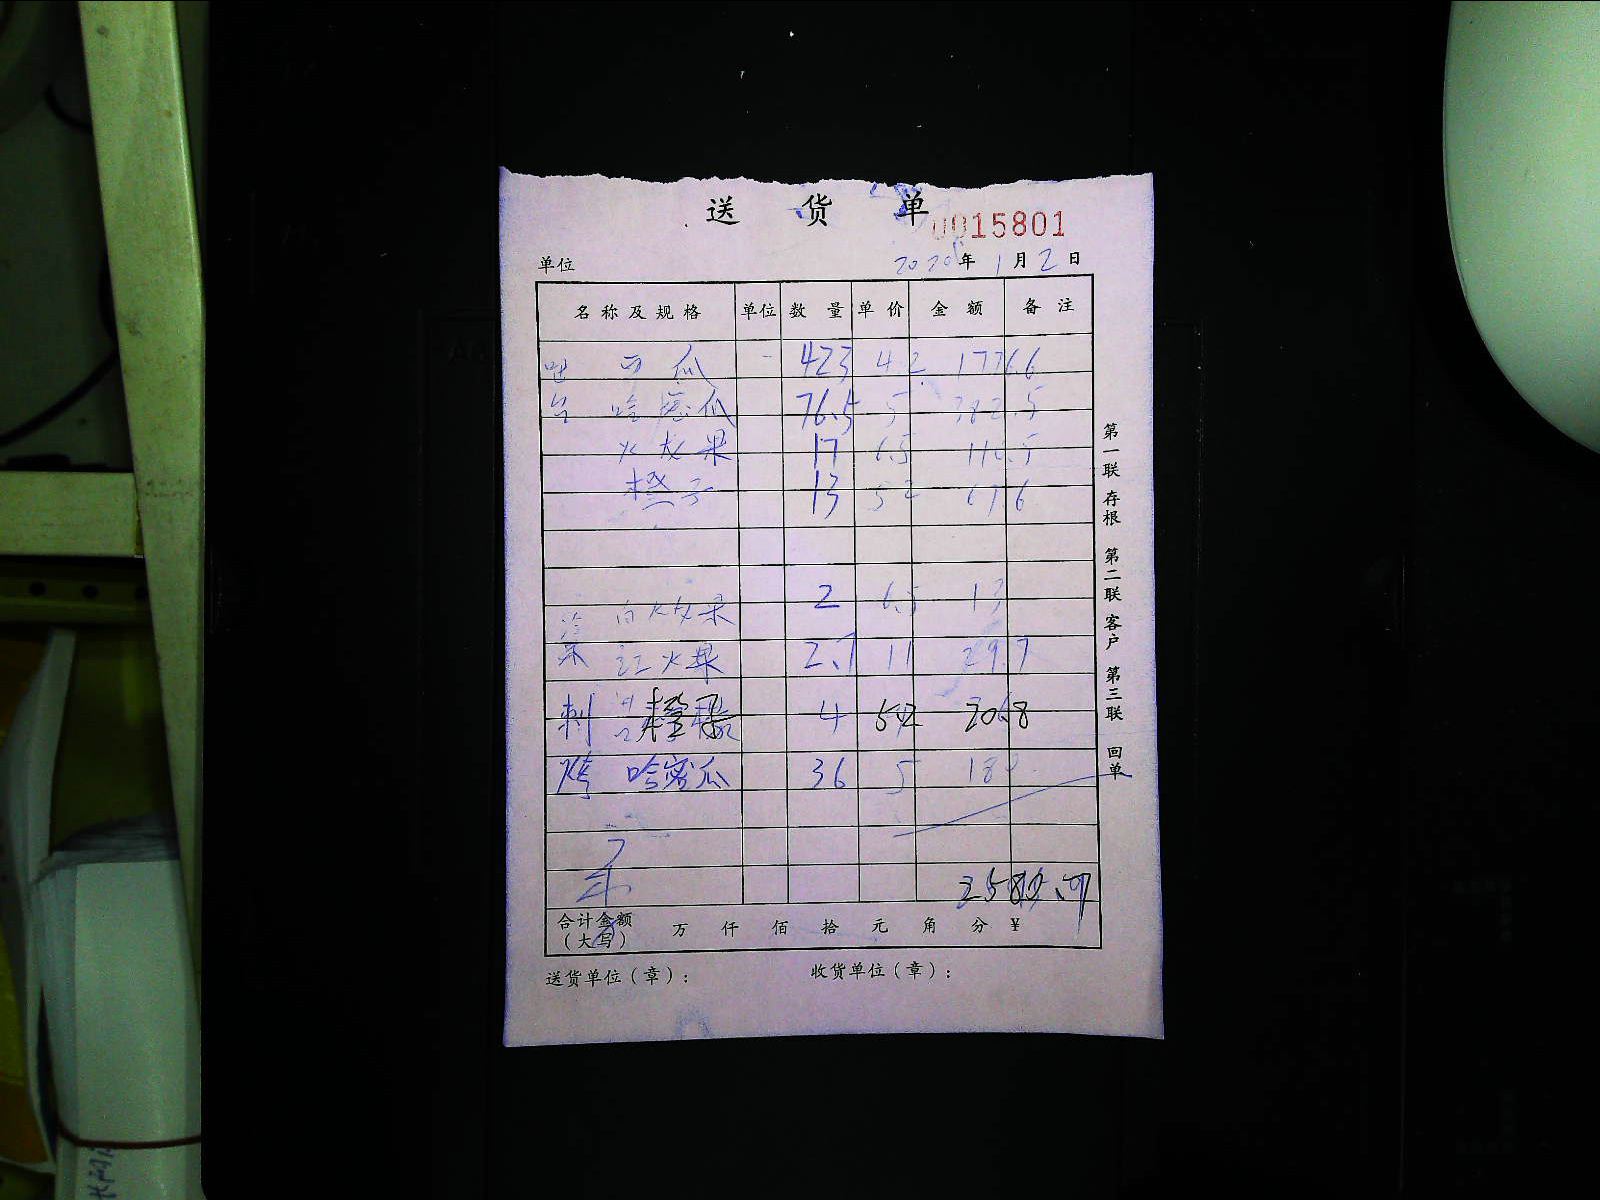 送 货 单
0015801
单位 2020年 1月2日
名称及规格 单位 数量 单价 金额 备注
西瓜 423 4.2 1776.6
哈密瓜 76.5 5 382.5
火龙果 17 6.5 110.5
橙子 13 5.2 67.6
白火龙果 2 6.5 13
红火果 2.7 11 29.7
刺 橙子 4 5.2 20.8
烤 哈密瓜 36 5 180
258 .7
合计金额
(大写) 万 仟 佰 拾 元 角 分 ¥
送货单位(章): 收货单位(章):
第一联 存根 第二联 客户 第三联 回单